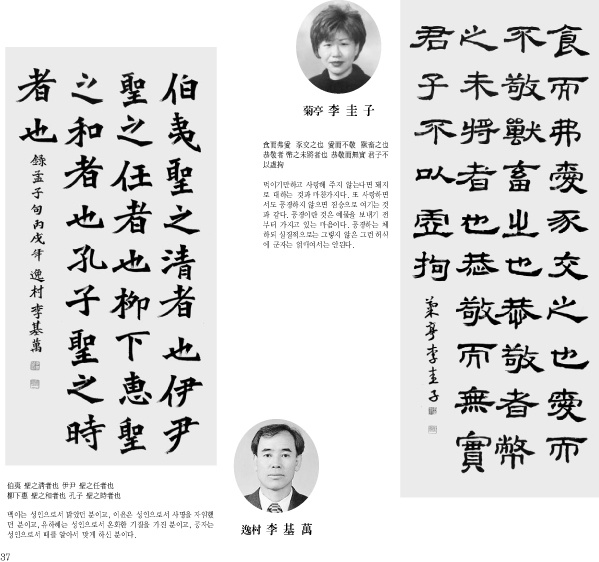 伯夷聖之清者也伊尹
聖之任者也柳下惠聖
之和者也孔子聖之時
者也
錄孟子句丙戌年 逸村 李基萬
伯夷 聖之淸者也 伊尹 聖之任者也
柳下惠 聖之和者也 孔子 聖之時者也
백이는 성인으로서 맑았던 분이고, 이윤은 성인으로서 사명을 자임했
던 분이고, 유하혜는 성인으로서 온화한 기질을 가진 분이고, 공자는
성인으로서 때를 알아서 맞게 하신 분이다.
37
菊亭 李 圭 子
食而弗愛 豕交之也 愛而不敬 獸畜之也
恭敬者 幣之未將者也 恭敬而無實 君子不
以虛拘
먹이기만하고 사랑해 주지 않는다면 돼지
로 대하는 것과 마찬가지다. 또 사랑하면
서도 공경하지 않으면 짐승으로 여기는 것
과 같다. 공경이란 것은 예물을 보내기 전
부터 가지고 있는 마음이다. 공경하는 체
하되 실질적으로는 그렇지 않은 그런 허식
에 군자는 얽매여서는 안된다.
逸村 李 基 萬
食而弗愛豕交之也愛而
不敬獸畜之也恭敬者幣
之未將者也恭敬而無實
君子不以虛拘
菊亭李圭子